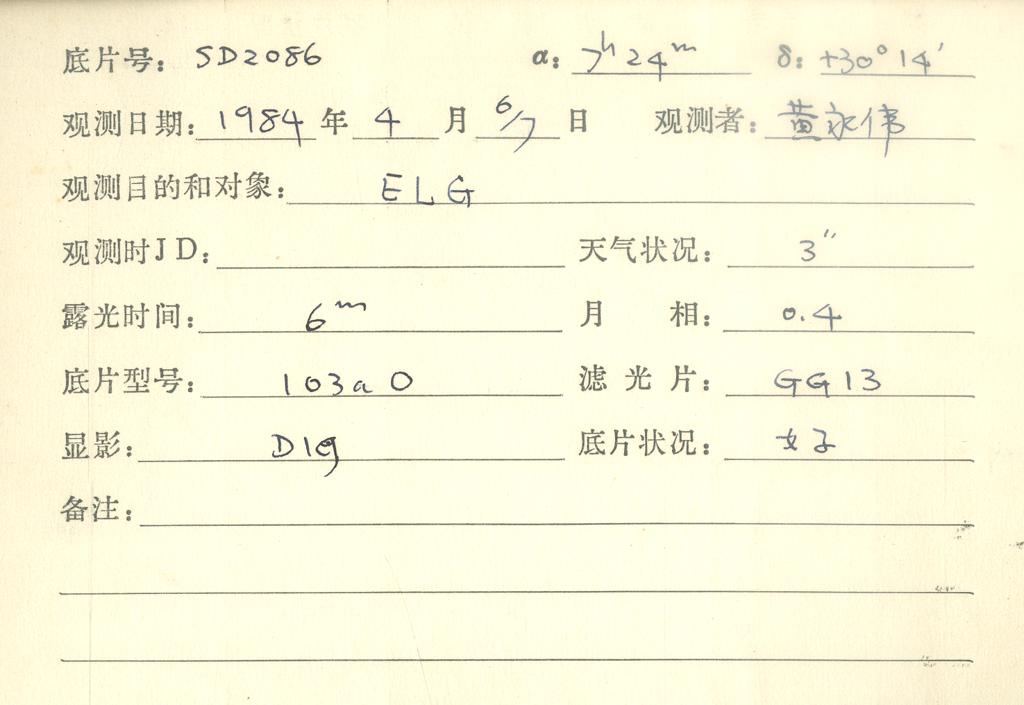 底片号: SD2086 α: 7ʰ 24ᵐ δ: +30° 14′
观测日期: 1984 年 4 月 6/7 日 观测者: 黄永伟
观测目的和对象: ELG
观测时JD: 天气状况: 3″
露光时间: 6ᵐ 月 相: 0.4
底片型号: 103aO 滤光片: GG13
显影: D19 底片状况: 好
备注: